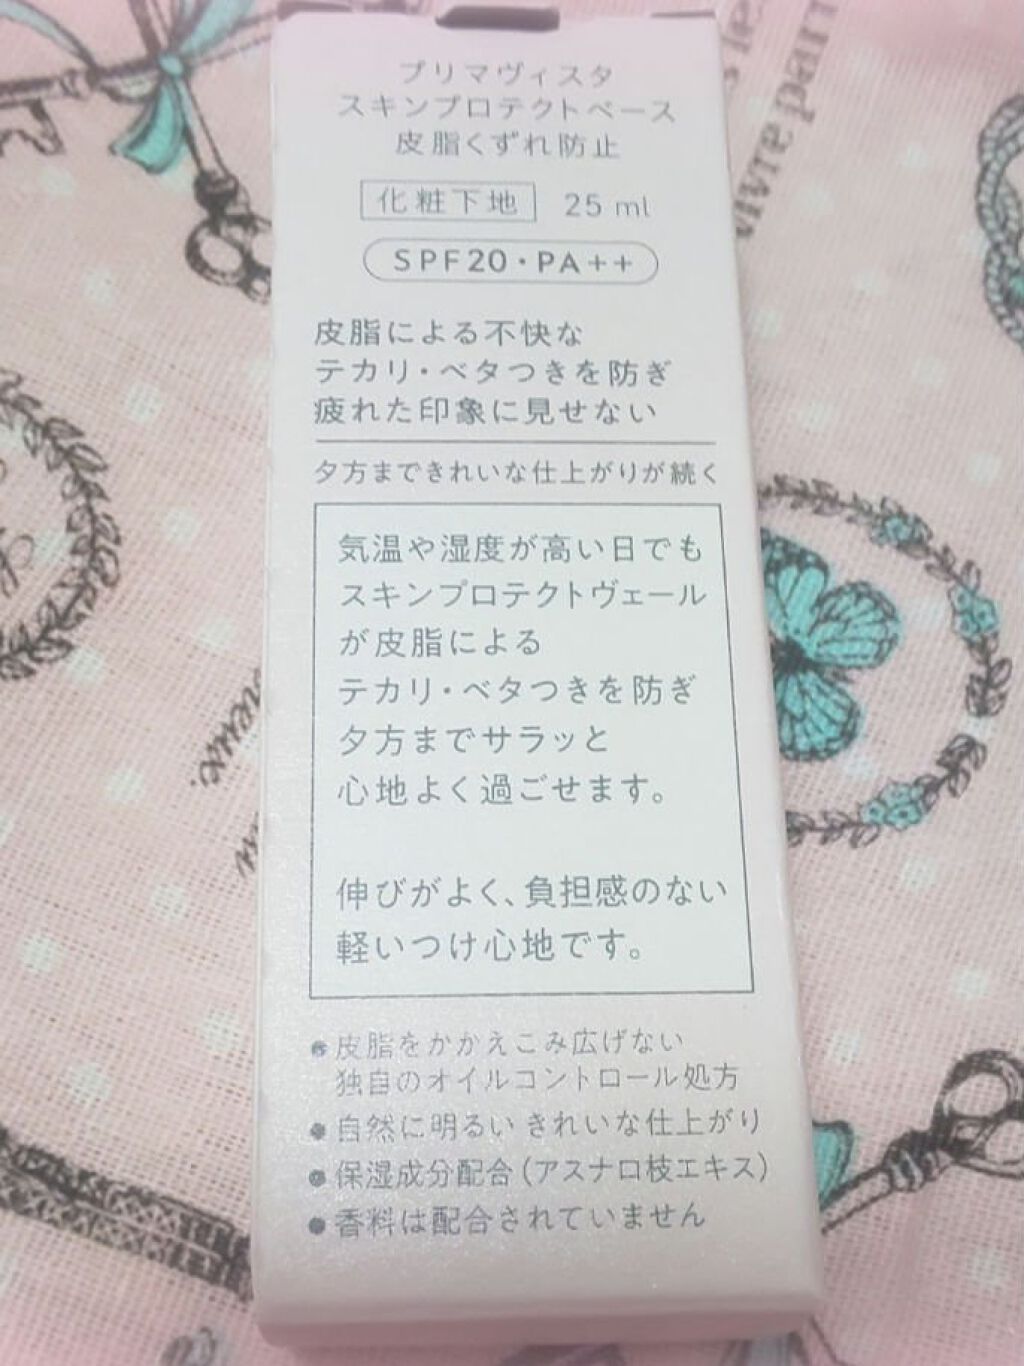 プリマヴィスタ
スキンプロテクトベース
皮脂くずれ防止
化粧下地 25 ml
SPF20・PA++
皮脂による不快な
テカリ・ベタつきを防ぎ
疲れた印象に見せない
夕方まできれいな仕上がりが続く
気温や湿度が高い日でも
スキンプロテクトヴェール
が皮脂による
テカリ・ベタつきを防ぎ
夕方までサラッと
心地よく過ごせます。
伸びがよく、負担感のない
軽いつけ心地です。
●皮脂をかかえこみ広げない
独自のオイルコントロール処方
●自然に明るい きれいな仕上がり
●保湿成分配合(アスナロ枝エキス)
●香料は配合されていません
vivre